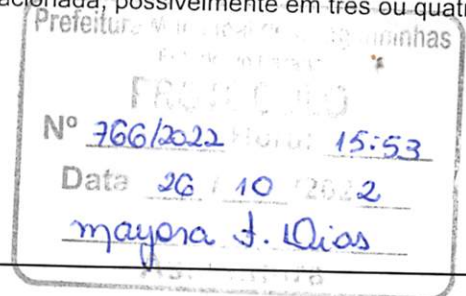 acionada, possivelmente em três ou quatr
Prefeitura ninhas
PROTOCOLO
Nº 766/2022 Hora: 15:53
Data 26 / 10 /2022
mayara J. Dias